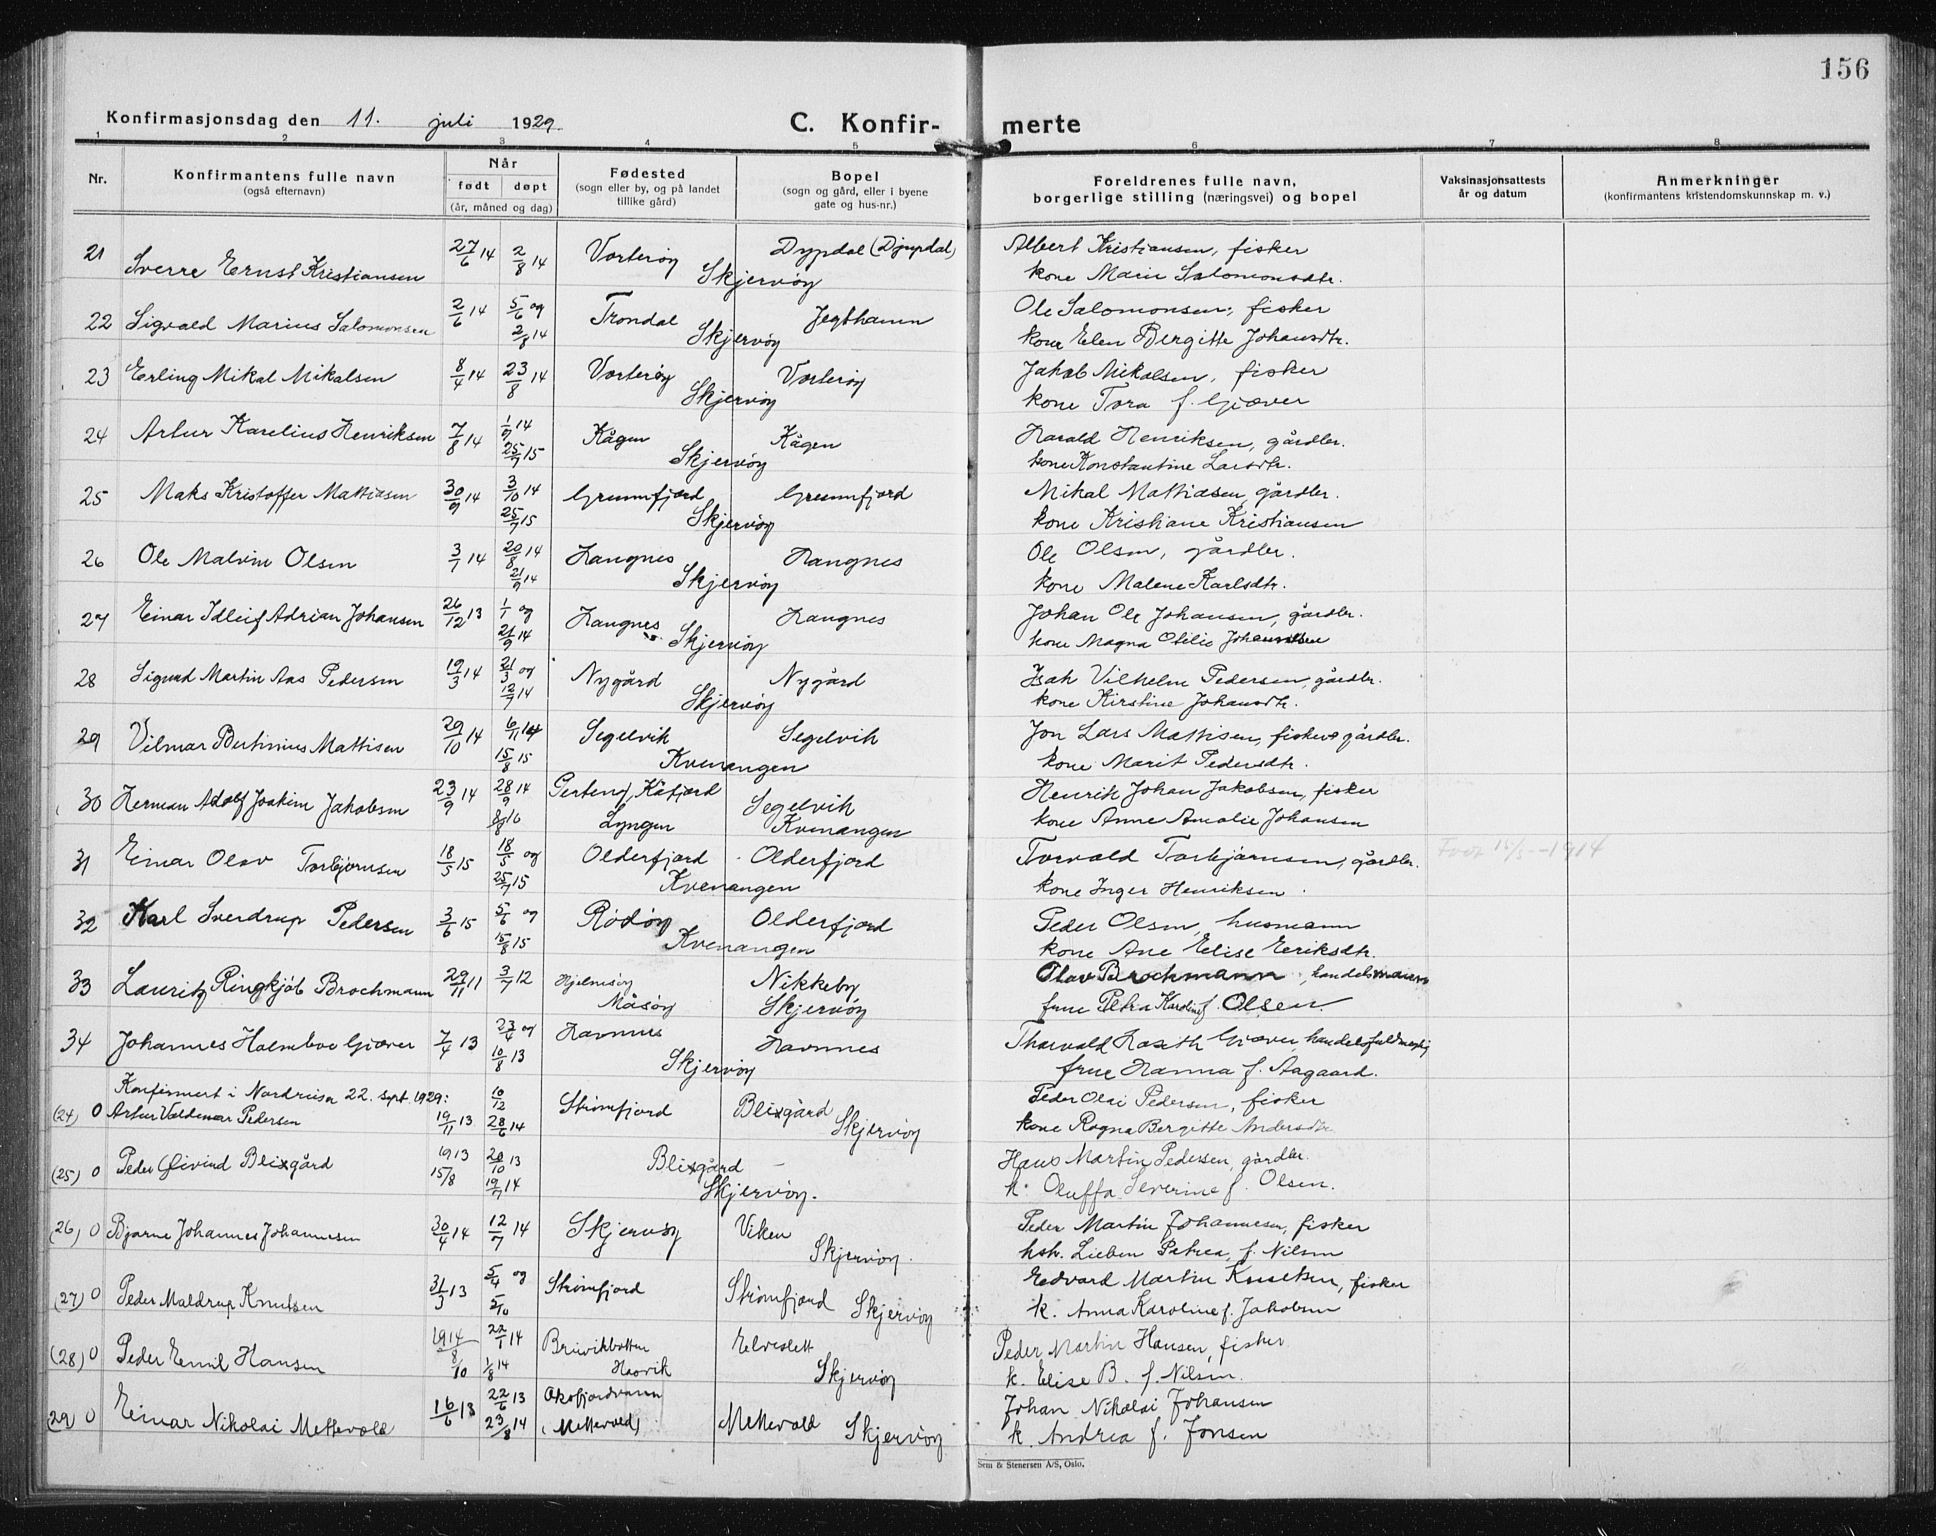 156
Konfirmasjonsdag den 11. juli 1929.
C. Konfir- merte
1 2 3 4 5 6 7 8
Nr. Konfirmantens fulle navn (også efternavn) Når født døpt (år, måned og dag) Fødested (sogn eller by, og på landet tillike gård) Bopel (sogn og gård, eller i byene gate og hus-nr.) Foreldrenes fulle navn, borgerlige stilling (næringsvei) og bopel Vaksinasjonsattests år og datum Anmerkninger (konfirmantens kristendomskunnskap m. v.)
21 Sverre Ernst Kristiansen 27/6 14 2/8 14 Vorterøy Dypdal (Djupdal) Albert Kristiansen, fisker
Skjervøy kone Marie Salomonsdtr.
22 Sigvald Marius Salomonsen 2/6 14 5/6 og 2/8 14 Trondal Jegthamn Ole Salomonsen, fisker
Skjervøy kone Elen Bergitte Johansdtr.
23 Erling Mikal Mikalsen 8/4 14 23/8 14 Vorterøy Vorterøy Jakob Mikalsen, fisker
Skjervøy kone Tora f. Giæver
24 Artur Karelius Henriksen 7/8 14 1/9 14 25/7 15 Kågen Kågen Harald Henriksen, gårdbr.
Skjervøy kone Konstantine Larsdtr.
25 Maks Kristoffer Mattiasen 30/9 14 3/10 14 25/7 15 Grunnfjord Grunnfjord Mikal Mattiasen, gårdbr.
Skjervøy kone Kristiane Kristiansen
26 Ole Malvin Olsen 3/7 14 20/8 14 21/9 14 Hangnes Hangnes Ole Olsen, gårdbr.
Skjervøy kone Malene Karlsdtr.
27 Einar Idleif Adrian Johansen 26/12 13 1/1 og 21/9 14 Hangnes Hangnes Johan Ole Johansen, gårdbr.
Skjervøy kone Magna Otilie Johannesen
28 Sigurd Martin Aas Pedersen 19/3 14 21/3 og 12/7 14 Nygård Nygård Isak Vilhelm Pedersen, gårdbr.
Skjervøy kone Kirstine Johansdtr.
29 Vilmar Bertinius Mattisen 29/10 14 6/11 14 15/8 15 Segelvik Segelvik Jon Lars Mattisen, fisker gårdbr.
Kvenangen kone Marit Pedersdtr.
30 Herman Adolf Joakim Jakobsen 23/9 14 28/9 14 8/8 16 Kåfjord Segelvik Henrik Johan Jakobsen, fisker
Lyngen Kvenangen kone Anne Amalie Johansen
31 Einar Olav Torbjørnsen 18/5 15 18/5 og 25/7 15 Olderfjord Olderfjord Torvald Torbjørnsen, gårdbr. Født 18/5 - 1914
Kvenangen kone Inger Henriksen
32 Karl Sverdrup Pedersen 3/6 15 5/6 og 15/8 15 Rødøy Olderfjord Peder Olsen, husmann
Kvenangen kone Ane Elise Eeriksdtr.
33 Lauritz Ringkjøb Brochmann 29/11 11 3/7 12 Hjelmsøy Nikkeby Olav Brochmann, handelsmann
Måsøy Skjervøy frue Petra Karoline f. Olsen.
34 Johannes Holmboe Giæver 7/4 13 23/4 og 10/8 13 Havnnes Havnnes Thorvald Giæver, handelsfullmegtig
Skjervøy frue Hanna f. Aagaard.
Konfirmert i Nordreisa 22. sept. 1929:
(24) 0 Artur Valdemar Pedersen 19/11 13 10/12 28/6 14 Strømfjord Blixgård Peder Olai Pedersen, fisker
Skjervøy kone Ragna Bergitte Andersdtr.
(25) 0 Peder Øivind Blixgård 1913 15/8 20/10 13 19/7 14 Blixgård Hans Martin Pedersen, gårdbr.
Skjervøy. k. Oluffa Severine f. Olsen.
(26) 0 Bjarne Johannes Johannesen 30/4 14 12/7 14 Skjervøy Viken Peder Martin Johannesen, fisker
Skjervøy. hstr. Lieben Petrea f. Nilsen
(27) 0 Peder Maldrup Knutsen 31/3 13 5/4 og 5/10 Strømfjord Strømfjord Edvard Martin Knutsen, fisker
Skjervøy k. Anna Karoline f. Jakobsen
(28) 0 Peder Emil Hansen 1914 8/10 22/1 14 1/8 14 Elveslett Peder Martin Hansen, fisker
Skjervøy k. Elise B. f. Nilsen.
(29) 0 Einar Nikolai Mettevold 16/6 13 22/6 13 23/8 14 Oksfjordvann (Mettevold) Mettevold Johan Nikolai Johansen
Skjervøy k. Andrea f. Jonsen
Sem & Stenersen A/S, Oslo.